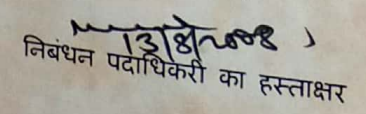 13/8/2008
निबंधन पदाधिकरी का हस्ताक्षर